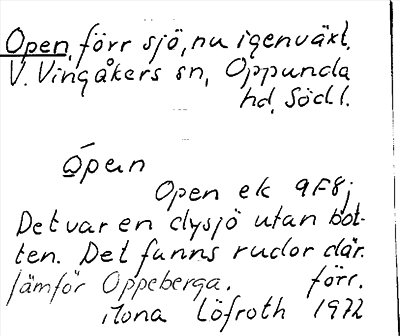 Open, förr sjö, nu igenväxt.
V. Vingåkers sn, Oppunda
hd, Södl.
Ōpen
Open ek 9F8j
Det var en dysjö utan bot-
ten. Det fanns rudor där
förr.
Jämför Oppeberga.
Mona Löfroth 1972